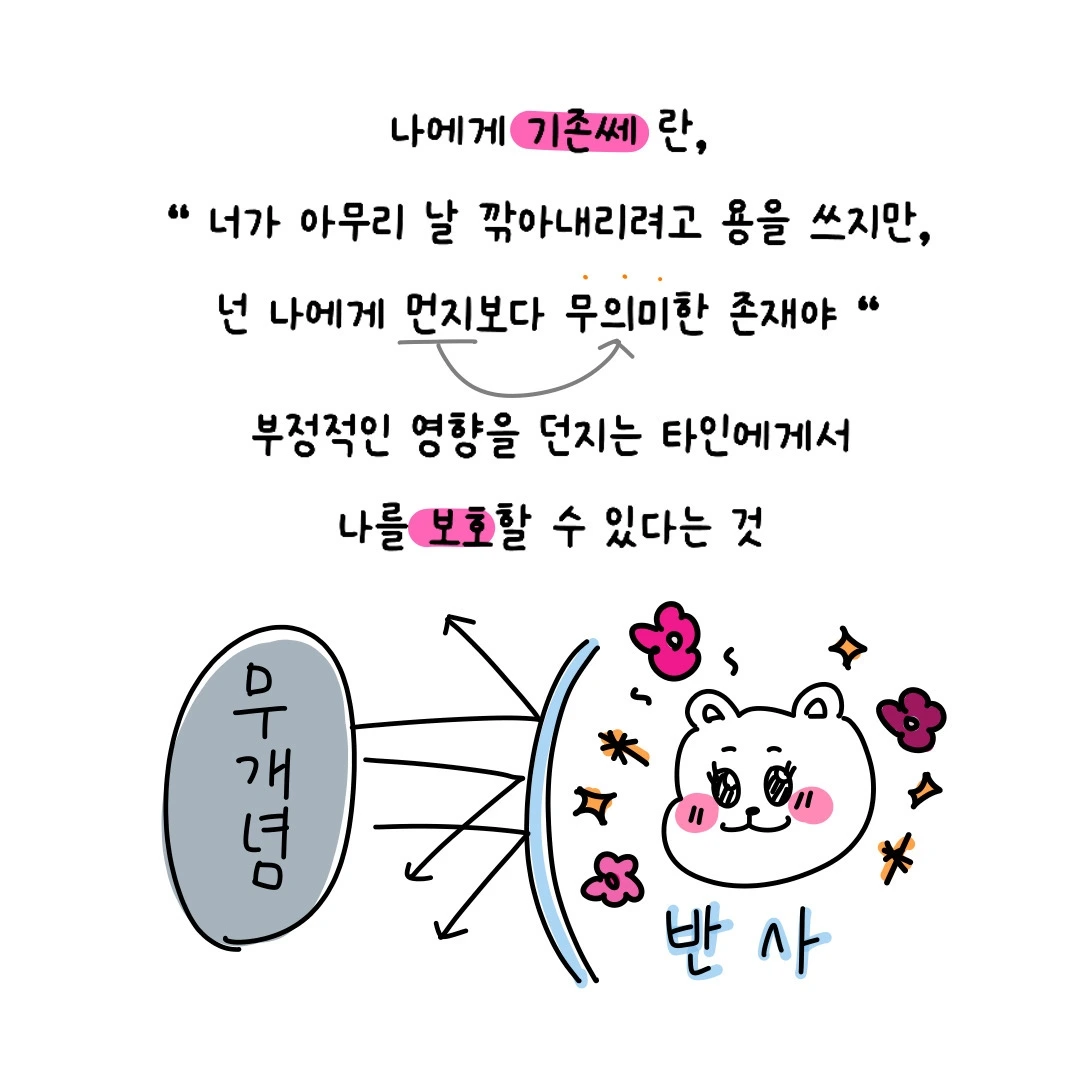 나에게 기존쎄 란,
“ 너가 아무리 날 깎아내리려고 용을 쓰지만,
넌 나에게 먼지보다 무의미한 존재야 “
부정적인 영향을 던지는 타인에게서
나를 보호할 수 있다는 것
무개념
반사